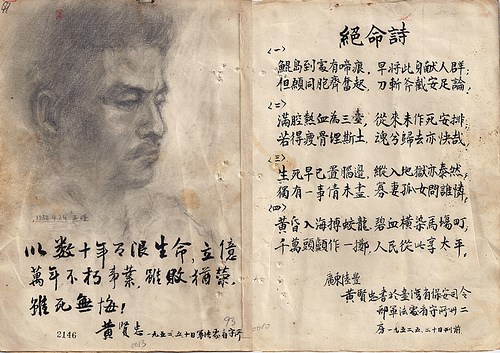 以数十年有限生命,立億
萬年不朽事業 雖敗猶榮,
雖死無悔!
黃賢忠 一九五二、五、二十日
2146
93
絕命詩
<一>
鯤島到處有啼痕,早將此身酬人群;
但願同胞齊奮起,刀斬斧截安足論,
<二>
滿腔熱血為三臺,從來未作死安排;
若得瘦骨埋斯土,魂兮歸去亦快哉,
<三>
生死早已置腦邊,縱入地獄亦泰然,
獨有一事情未盡,寡妻孤女問誰憐,
<四>
黃昏入海搏蛟龍,碧血橫染馬場町,
千萬頭顱作一擲,人民從此享太平,
廣東陸豐
黃賢忠書於臺灣省保安司令
部軍法處看守所卅二
房一九五二、五、二十日刑前